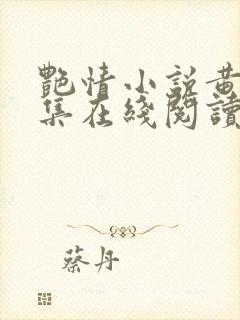 艷情小說黃
集在綫閱讀
蔡丹